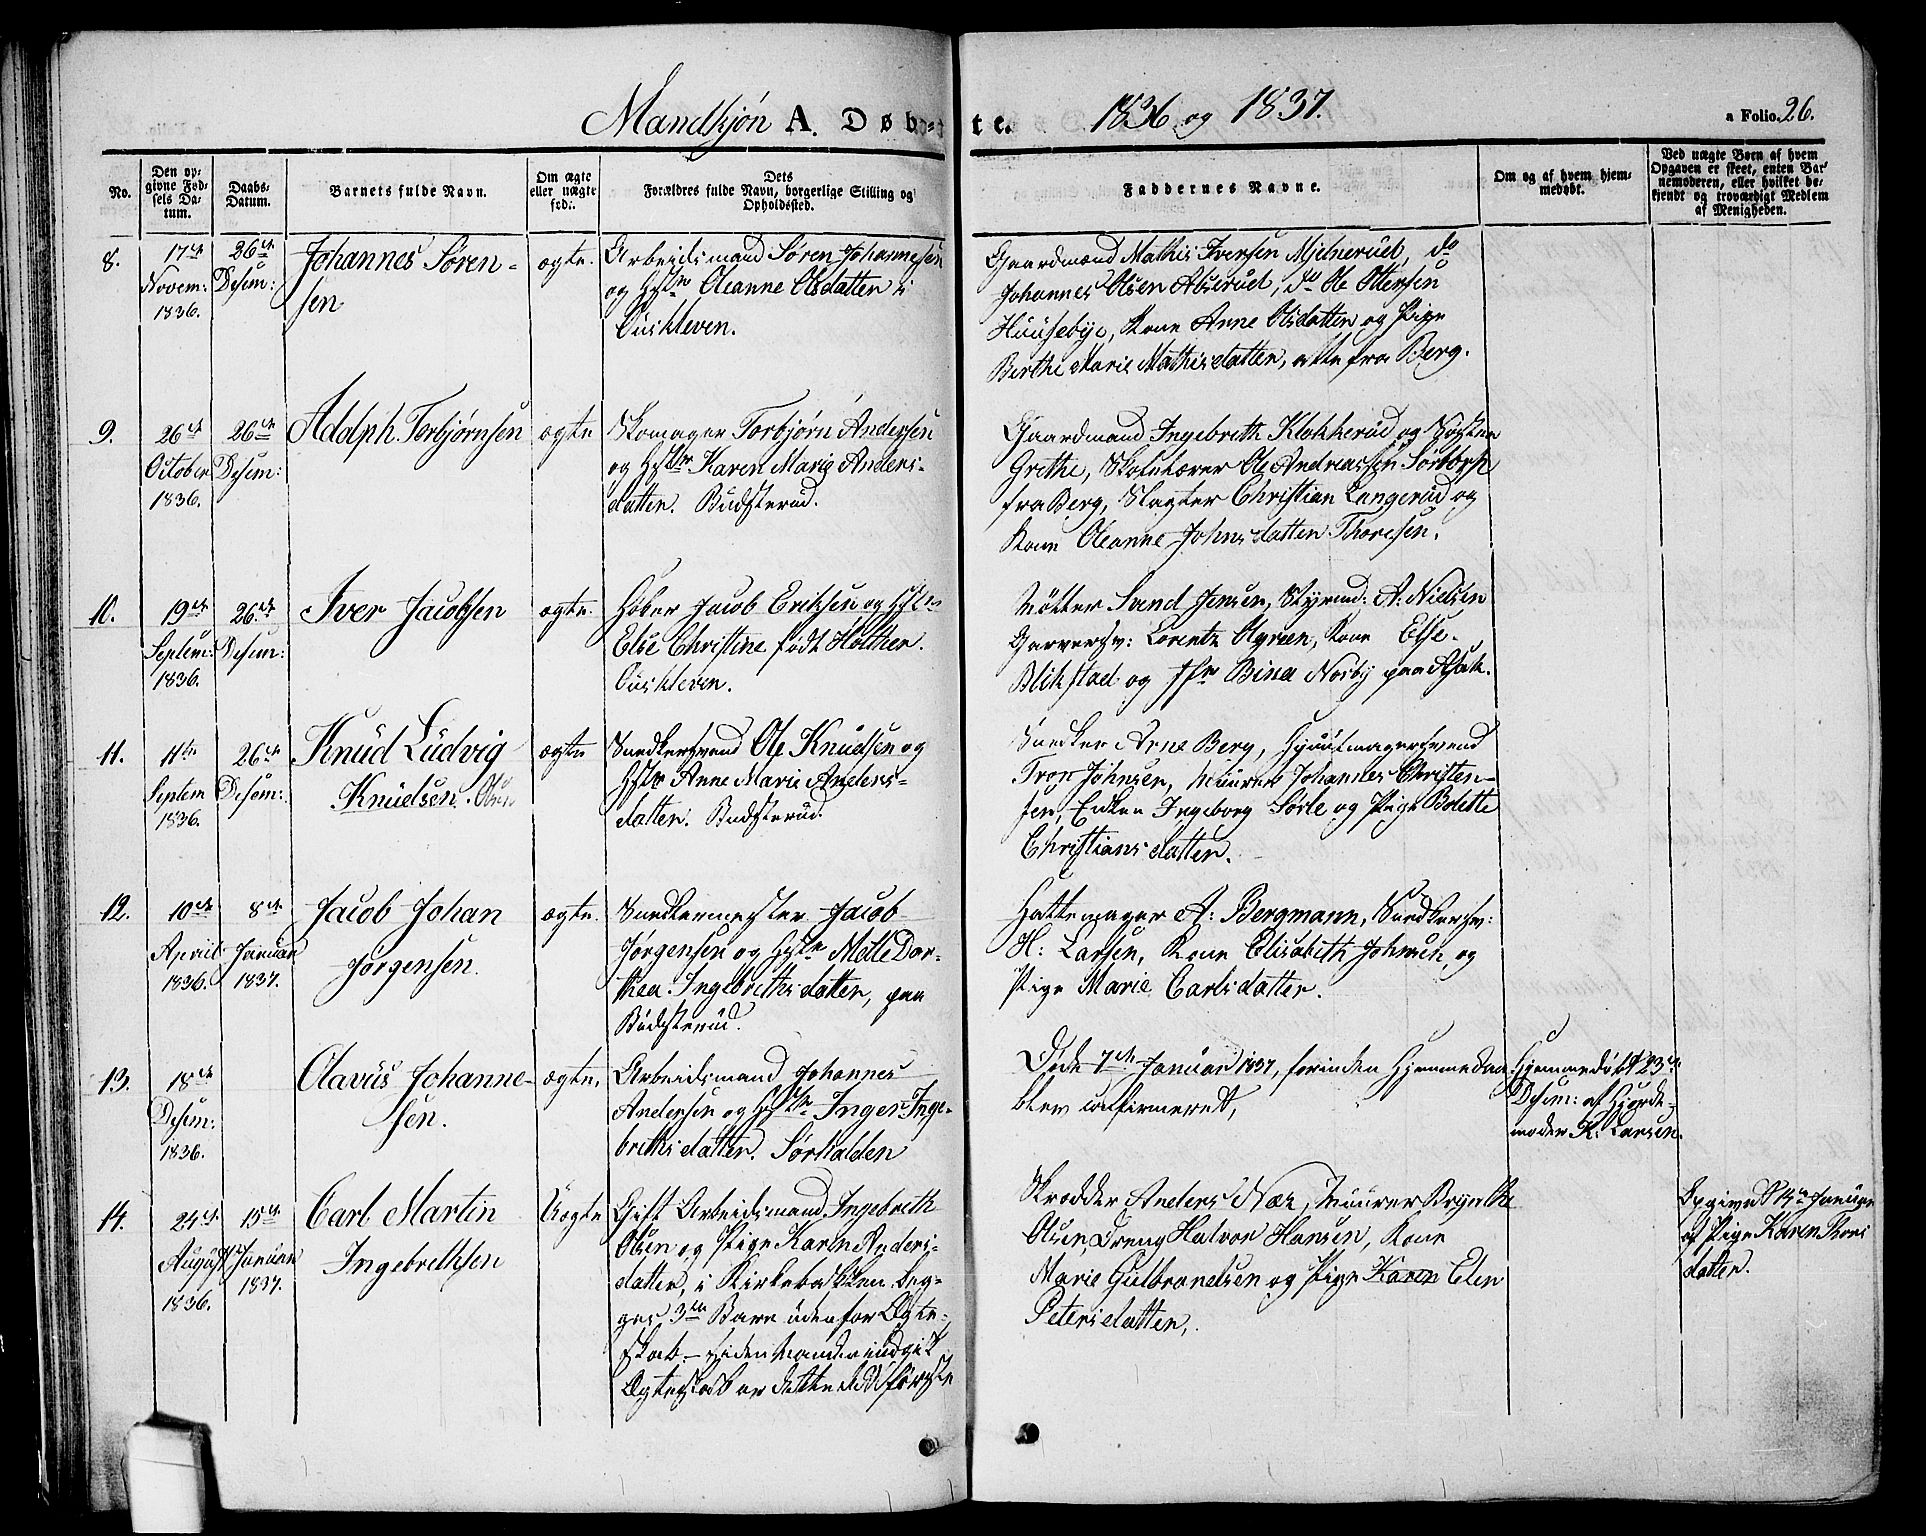 Mandkjøn A. Døbte. 1836 og 1837. a Folio. 26.
No.
Den opgivne Fødsels Datum.
Daabs-Datum.
Barnets fulde Navn.
Om ægte eller uægte fød.
Dets Forældres fulde Navn, borgerlige Stilling og Opholdssted.
Faddernes Navne.
Om og af hvem hjemmedøbt.
Ved uægte Børn af hvem Opgaven er skeet, enten Barnemoderen, eller hvilket bekjendt og troværdigt Medlem af Menigheden.
8.
17de Novem: 1836.
26de Desem:
Johannes Sørensen
ægte.
Arbeidsmand Søren Johannesen
og Hstr Oleanne Olsdatter i
Ouskleven.
Gaardmænd Mathis Iversen Mjelnerud, do
Johannes Olsen Abserud, do Ole Ottersen
Huusebye, Kone Anne Olsdatter og Pige
Berthe Marie Mathisdatter, alle fra Berg.
9.
26de October 1836.
26de Desem:
Adolph Torbjørnsen
ægte
Skomager Torbjørn Andersen
og Hstr Karen Marie Anders-
datter. Budsterud.
Gaardmand Ingebreth Klokkerud og Søster
Grethe, Skolelærer Ole Andreassen
fra Berg, Slagter Christian Langerud og
Kone Oleanne Johnsdatter Thoresen.
10.
19de Septem: 1836.
26de Desem:
Iver Jacobsen
ægte.
Høker Jacob Eriksen og Hstr
Else Christine født Holther.
Ouskleven.
Svend Jensen, Styrmd: A. Nielsen
Garversv: Lorentz Kone Else
Blikstad og Jfr Bina Norby paa
11.
11te Septem 1836.
26de Desem:
Knud Ludvig
Knudsen. Olsen
ægte
Snedkersvend Ole Knudsen og
Hstr Anne Marie Anders-
datter. Budsterud.
Snedker Arne Berg,
Tron Johnsen, Muurer Johannes Christen-
sen, Enken Ingeborg Sørle og Pige Bolette
Christiansdatter.
12.
10de April 1836.
8de Januar 1837.
Jacob Johan
Jørgensen.
ægte.
Snedkermester Jacob
Jørgensen og Hstr Mette Dor-
thea Ingebrethsdatter, paa
Budsterud.
Hattemager A: Bergmann, Snedkersv:
H: Larsen, Kone Elisabeth Johnsen og
Pige Marie Carlsdatter.
13.
18de Desem: 1836.
Olavus Johanne-
sen.
ægte.
Arbeidsmand Johannes
Andersen og Hstr Inger Inge-
brethsdatter. Sørhalden
Døde 7de Januar 1837, forinden Hjemmedaaben
blev confirmeret,
Hjemmedøbt 23de
Desem: af Hjorde-
moder K: Larsen.
14.
24de August 1836.
15de Januar 1837.
Carl Martin
Ingebrethsen
Uægte
Gift Arbeidsmand Ingebreth
Olsen og Pige Karen Anders-
datter, i Kirkebakken beg-
ges 3die Barn udenfor Ægte-
skab. – Siden Manden indgik
Ægteskab er dette det første
Skrædder Anders Næs, Muurer Brynild
Olsen, Dreng Halvor Hansen, Kone
Marie Gulbrandsen og Pige Karen Elen
Petersdatter,
Opgivet 14de Januar
af Pige Karen Thors
datter.